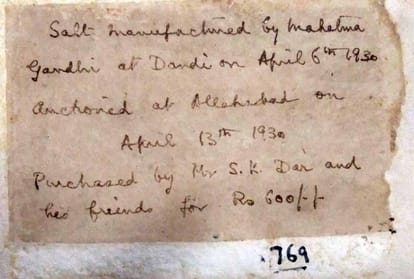 Salt manufactured by Mahatma
Gandhi at Dandi on April 6th 1930
Auctioned at Allahabad on
April 13th 1930
Purchased by Mr S. K. Dar and
his friends for Rs 600/-/-
769